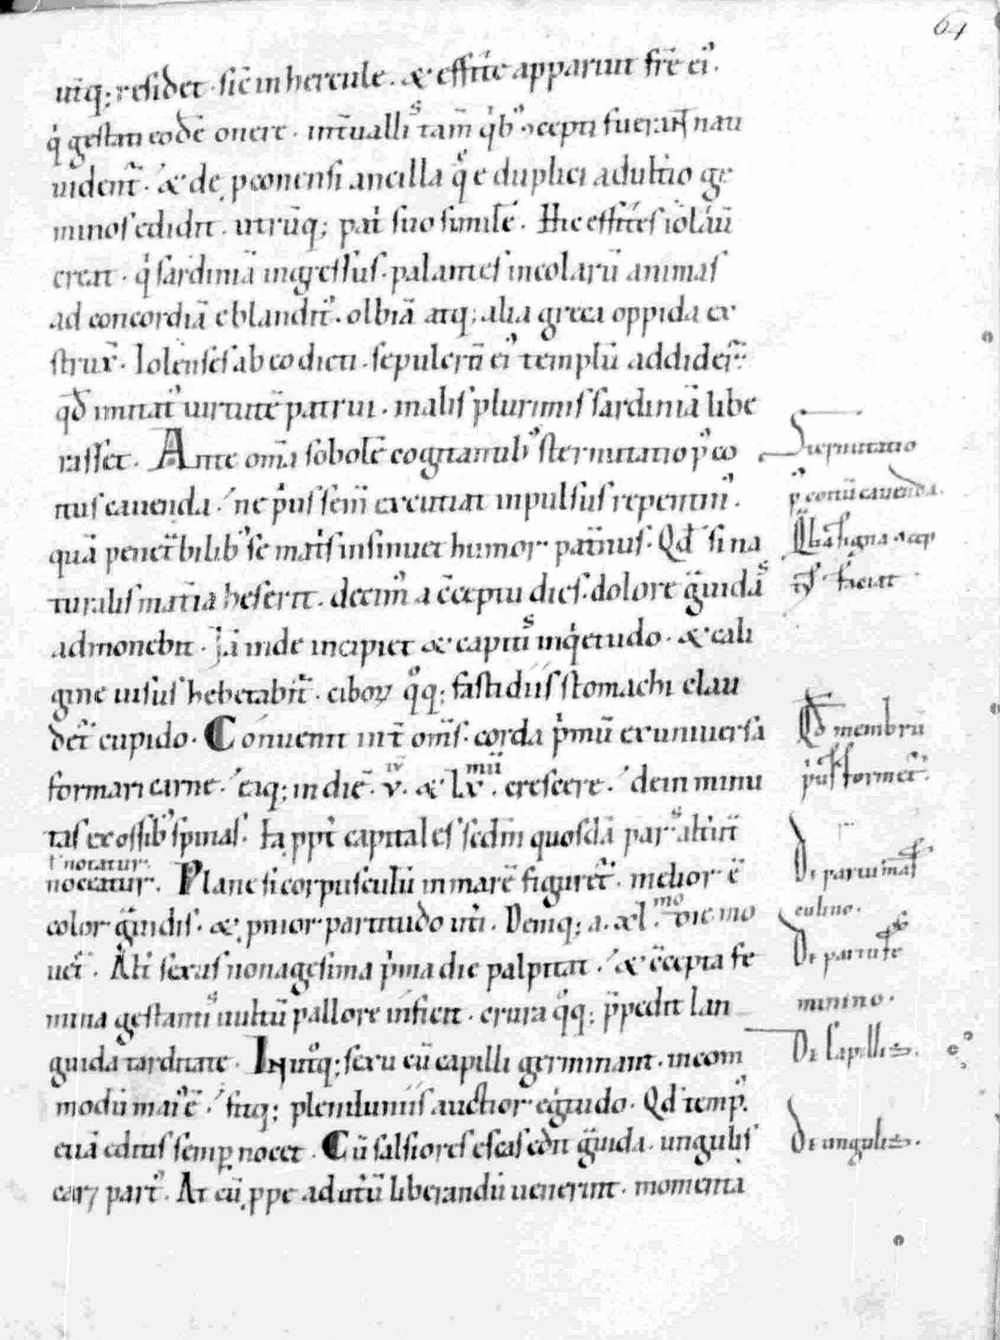 64
utq; residet. sic in hercule. & effíte apparuit fr̄e eiꝰ.
q̇ gestati eodē onere. int̄uallis tam̄ q̇bꝰ ꝯcepti fuerant nati
uident̄. & de ꝓconensi ancilla q̄ e duplici adult̄io ge
minos edidit. utrūq; pat̄ suo similē. Hic effites iolauū
creat. q̇ sardiniā ingressus. palantes incolarū animas
ad concordiā eblandit̄. olbiā atq; alia greca oppida ex
strux̄. Iolenses ab eo dicti. sepulcrū eiꝰ templū addider̄.
qđ imitatꝰ uirtutē patrui. malis plurimis sardiniā libe
rasset. Ante om̄a sobolē cogitantibꝰ sternutatio ꝑ co
itus cauenda. ne p̄us sem̄ excutiat inpulsus repentinꝰ.
quā penet̄bilibꝰ se mat̄s insinuet humor patnus. Qđ si na
turalis mat̄ia heserit. decimꝰ a c̄ceptu dies. dolore ḡuidas
admonebit. Jā inde incipiet & capitis inq̇etudo. & cali
gine uisus hebetabit̄. ciboꝝ q̊q; fastidiis stomachi clau
det̄ cupido. Conuenit int̄ om̄s. corda p̄mū ex uniuersa
formari carne. eaq; in diē. v. & lx. crescere. dein minu
iv mii
tas ex ossibꝰ spinas. Ea ppt̄ capital es si edm̄ quosdā pars alt̄utī
ł notatur.
noceatur. Plane si corpusculū in marē figuret̄. melior ē
color ḡuidis. & ꝓnior partitudo ut̄i. Deniq; a. xl.mo die mo
uet̄. Alt̄ sexus nonagesima p̄ma die palpitat. & c̄cepta fe
mina gestantis uultū pallore inficit. crura q̊q; p̄pedit lan
guida tarditate. In ut̊q; sexu cū capilli germinant. incom
modū maiꝰ ē. fitq; pleniluniis auctior eg̊tudo. Qđ tempꝰ.
etiā editis semꝑ nocet. Cū salsiores escas edit ḡuida. ungulis
caret partꝰ. At cū ꝓpe ad ut̄ū liberandū uenerint. momenta
Sternutatio
p̱ coitū cauenda.
Qua signa ꝯcep
tꝰ faciat
Qđ membrū
p̄us formet̄.
De partu mas
culino.
De partu fe
minino.
De capillis.
De ungulis.